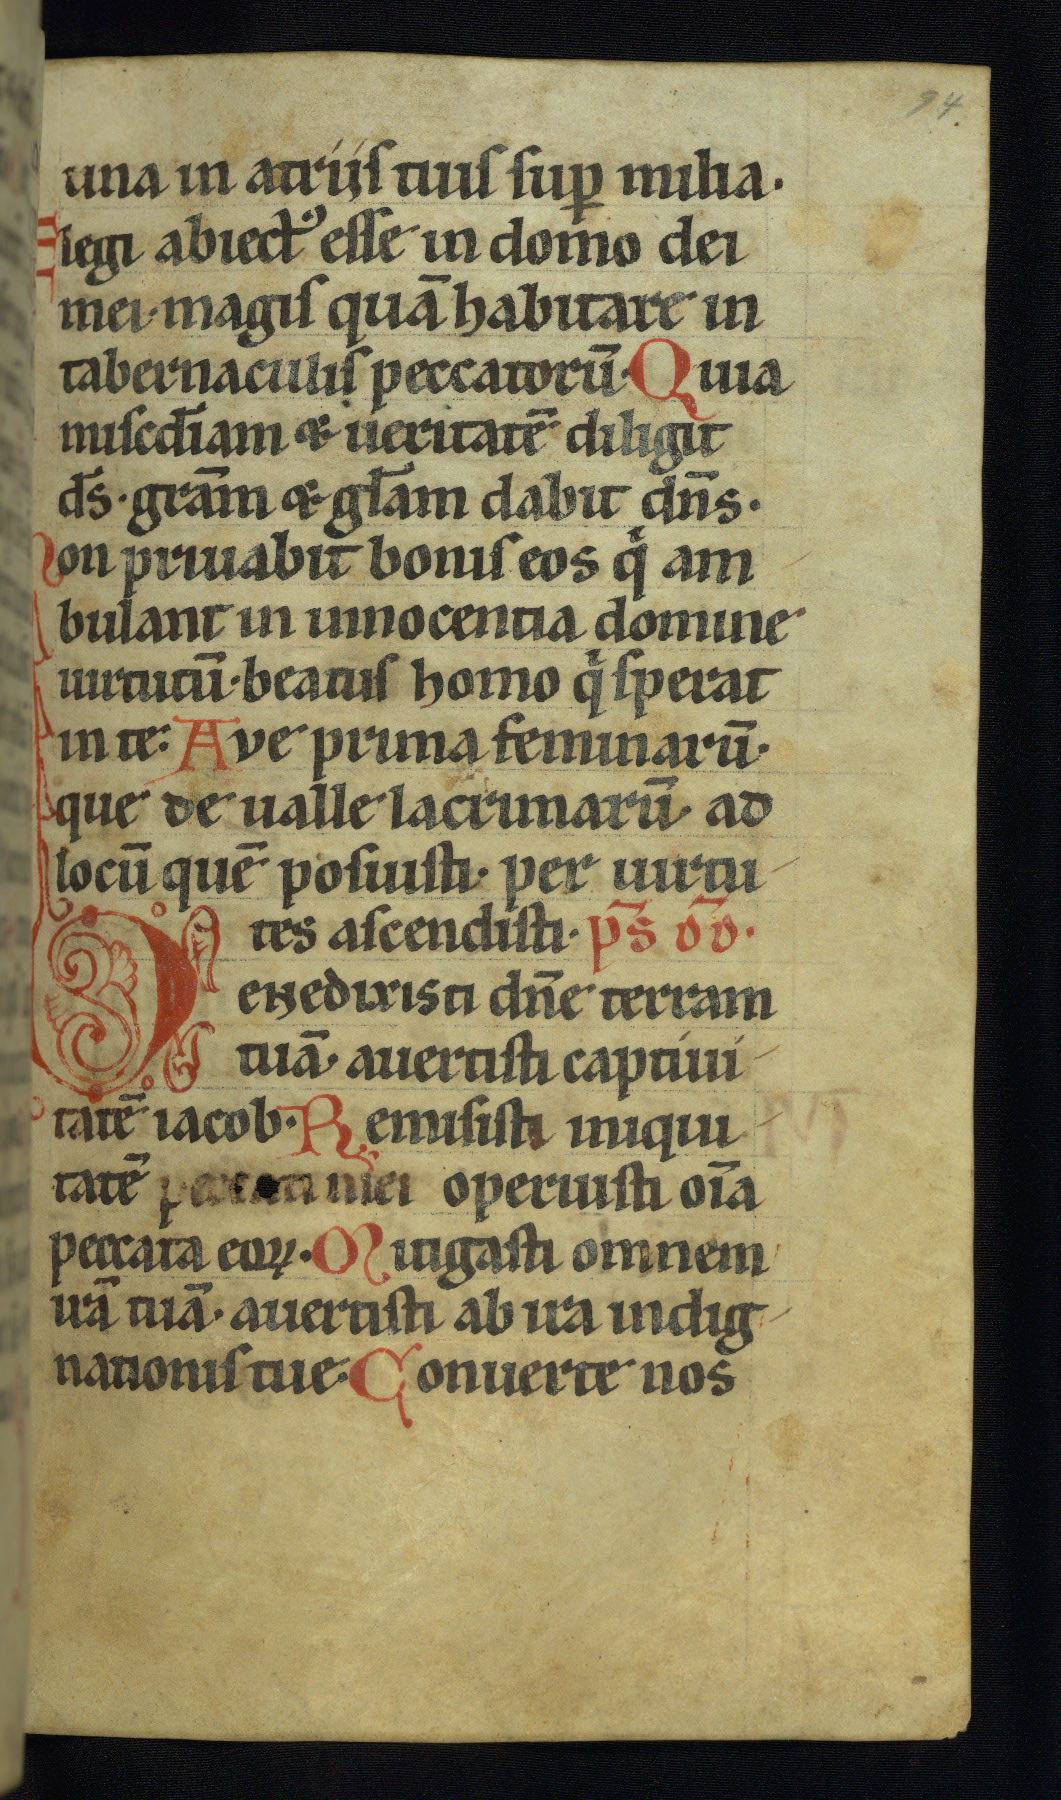 94
una in atriis tuis sup milia.
Elegi abiectꝰ esse in domo dei
mei. magis quā habitare in
tabernaculis peccatorū. Quia
miscdiam & ueritatē diligit
ds̄. gram & gl̄am dabit dn̄s.
Non priuabit bonis eos qi am
bulant in innocentia domine
uirtutū. beatus homo qi sperat
in te: Ave prima feminarū.
que de ualle lacrimarū. ad
locū quē posuisti. per uirtu
tes ascendisti. ps̄ dd̄.
Benedixisti dn̄e terram
tuā. auertisti captiui
tatē iacob. Remisisti iniqui
tatē peccati mei operuisti oīa
peccata eoꝝ. Mitigasti omnem
irā tuā. auertisti ab ira indig
nationis tue. Conuerte nos